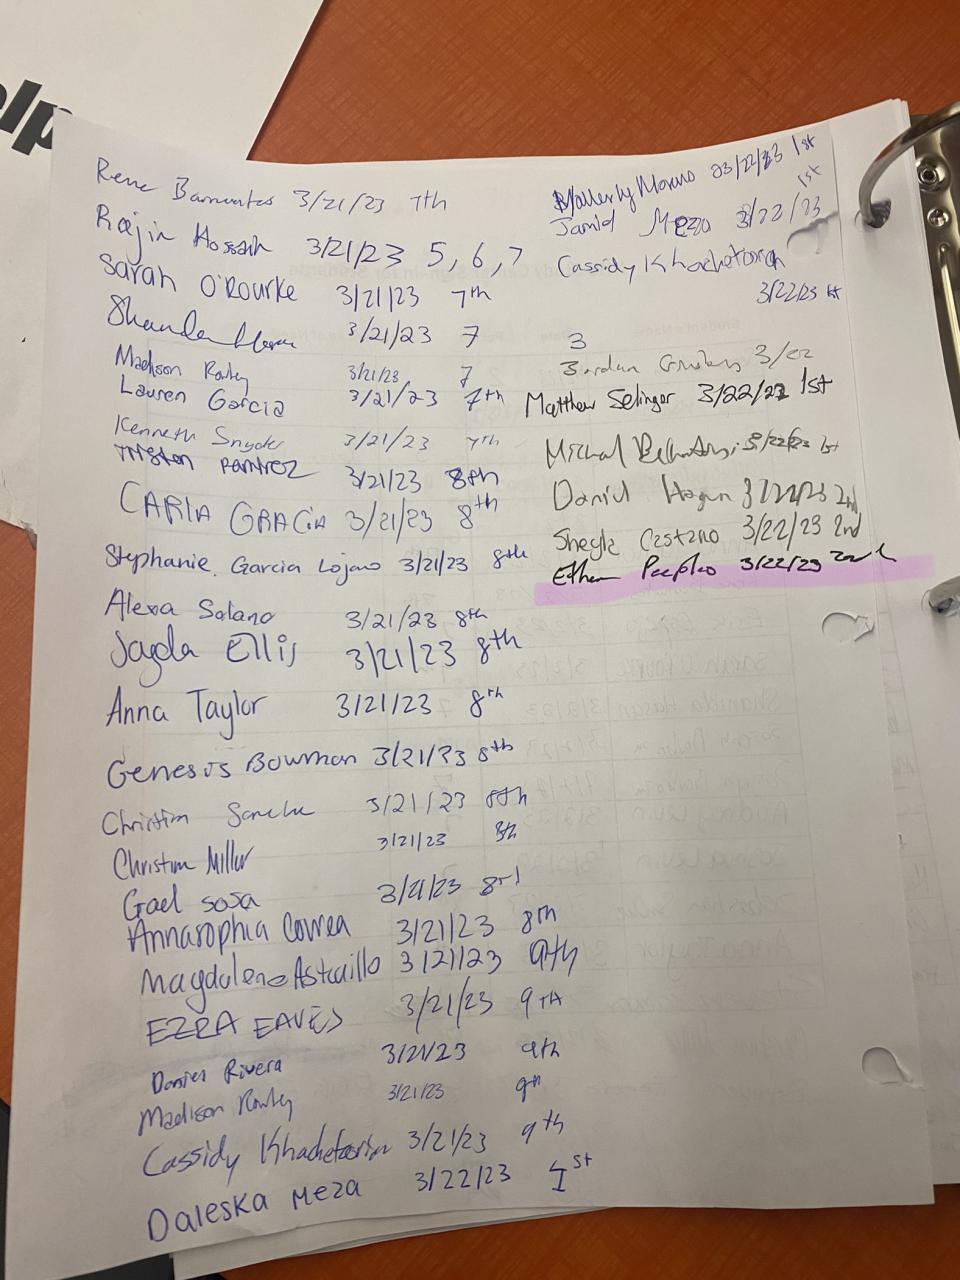 elp
Rene Barrientos 3/21/23 7th
Rajin Hossain 3/21/23 5, 6, 7
Sarah O'Rourke 3/21/23 7th
3/21/23 7
Madison Rowley 3/21/23 7
Lauren Garcia 3/21/23 7th
Kenneth Snyder 3/21/23 7th
Tristen Ramirez 3/21/23 8th
CARLA GRACIA 3/21/23 8th
Stephanie Garcia Lojano 3/21/23 8th
Alexa Solano 3/21/23 8th
Jayda Ellis 3/21/23 8th
Anna Taylor 3/21/23 8th
Genesis Bowman 3/21/23 8th
Christian 3/21/23 8th
Christian Miller 3/21/23 8th
Gael sosa 3/21/23 8rd
Annasophia Correa 3/21/23 8th
Magdalena Astudillo 3/21/23 9th
EZRA EAVES 3/21/23 9TH
Daniel Rivera 3/21/23 9th
Madison Rowley 3/21/23 9th
Cassidy Khachetoorian 3/21/23 9th
Daleska Meza 3/22/23 1st
Moreno 03/22/23 1st
Jamid Meza 3/22/23 1st
Cassidy
3/22/23 1st
3
Jordan 3/22
Matthew Selinger 3/22/23 1st
Michael 3/22/23 1st
Daniel Hagun 3/22/23 2nd
Sheyla Castano 3/22/23 2nd
Ethan Peoples 3/22/23 2nd